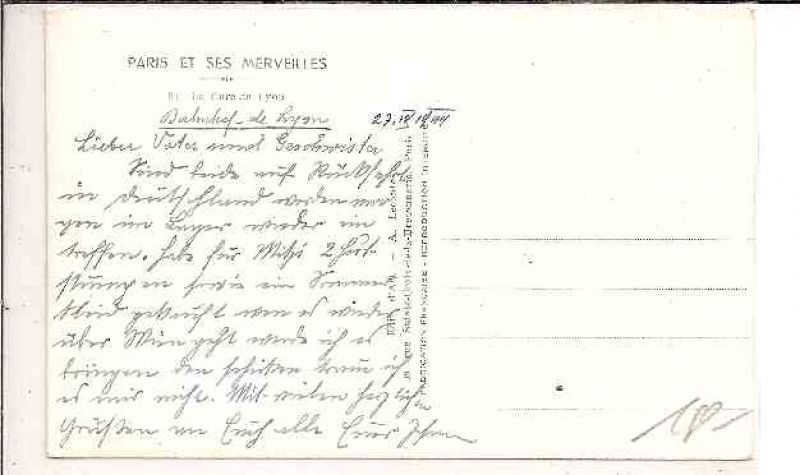 PARIS ET SES MERVEILLES
La Gare de Lyon
Bahnhof de Lyon
27.IV 1944
Lieber Vater und Geschwister
Sind beide auf Rückfahrt
in Deutschland werden mor
gen im Lager wieder ein
treffen. Habe für Mitzi 2
sowie ein Sommer
kleid gekauft wen es wieder
über Wien geht werde ich es
bringen den schicken traue ich
es mir nicht. Mit vielen herzlichen
Grüßen an Euch alle Euer
A. Leconte
FABRICATION FRANÇAISE - REPRODUCTION INTERDITE